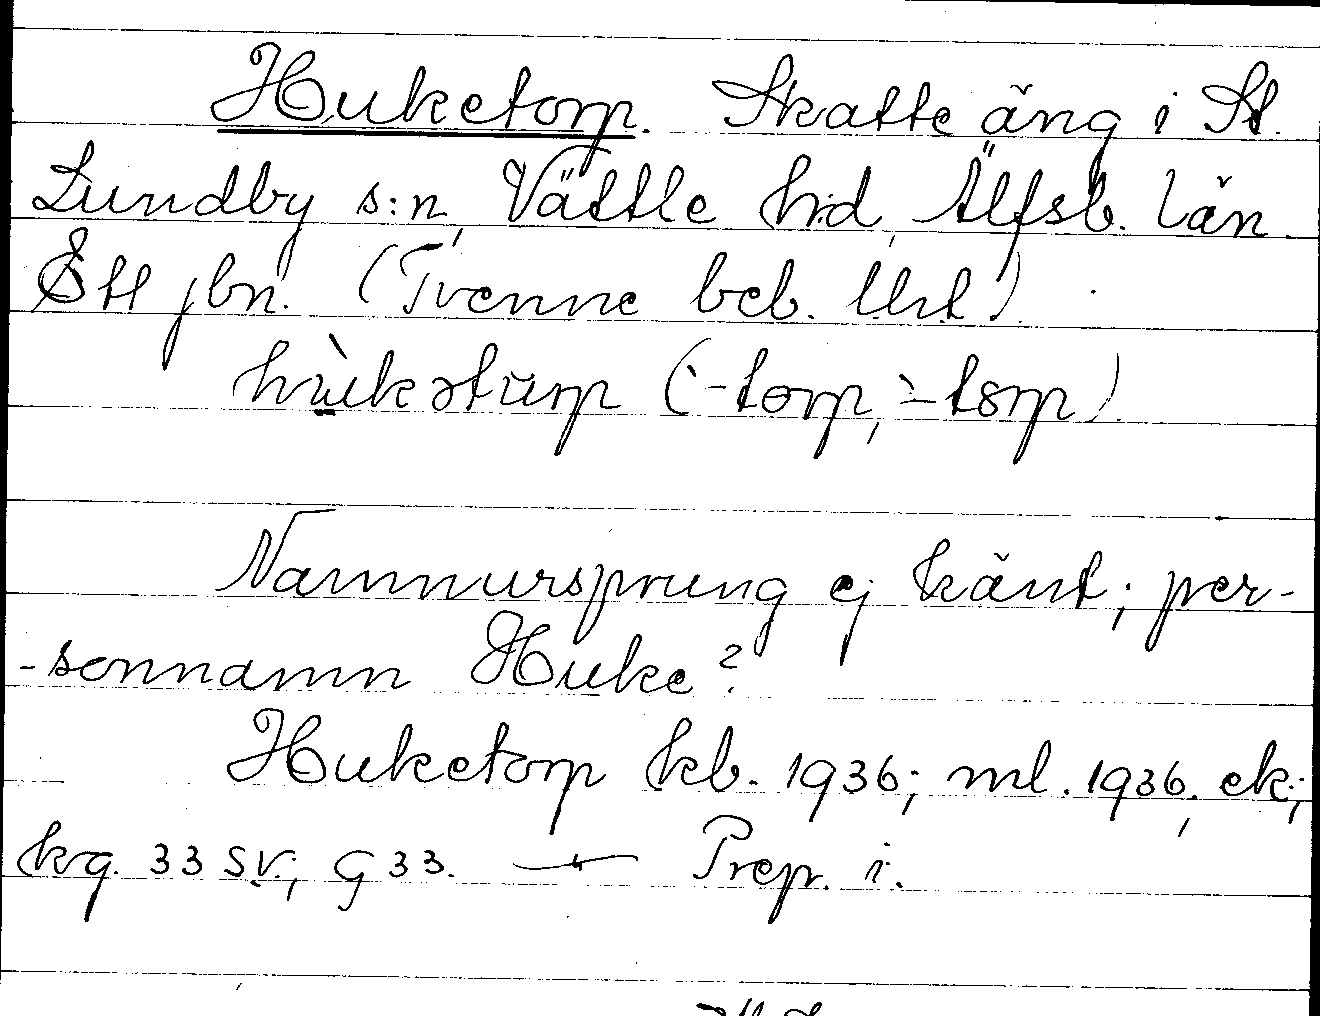 Huketorp. Skatte äng i St.
Lundby s:n, Vättle h:d, Älfsb. län.
Ett jbn. (Tvenne beb. Utr.)
hùkətùrp (-torp, -torp)
Namnursprung ej känt; per-
-sonnamn Huke?
Huketorp kb. 1936; ml. 1936, ek;
krg. 33 SV.; G 33. — Prep. i.